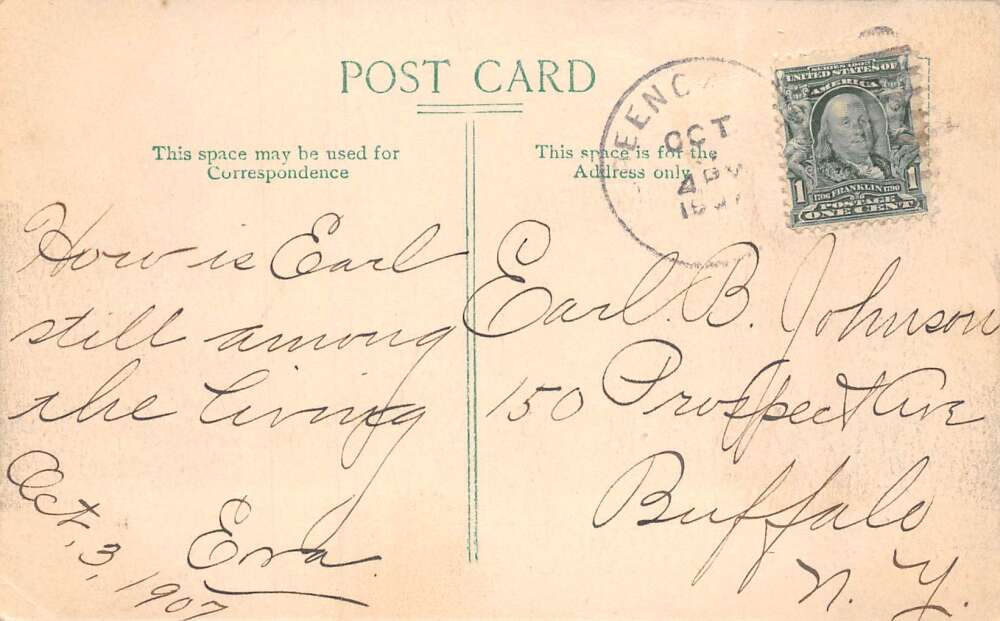 POST CARD
This space may be used for
Correspondence
This space is for the
Address only
EENC
OCT
4 PM
1907
SERIES 1902
UNITED STATES OF
AMERICA
1706 FRANKLIN 1790
1 POSTAGE 1
ONE CENT
How is Earl
still among
the living
Oct, 3, 1907
Eva
Earl. B. Johnson
150 Prosspect Ave
Buffalo
N. Y.